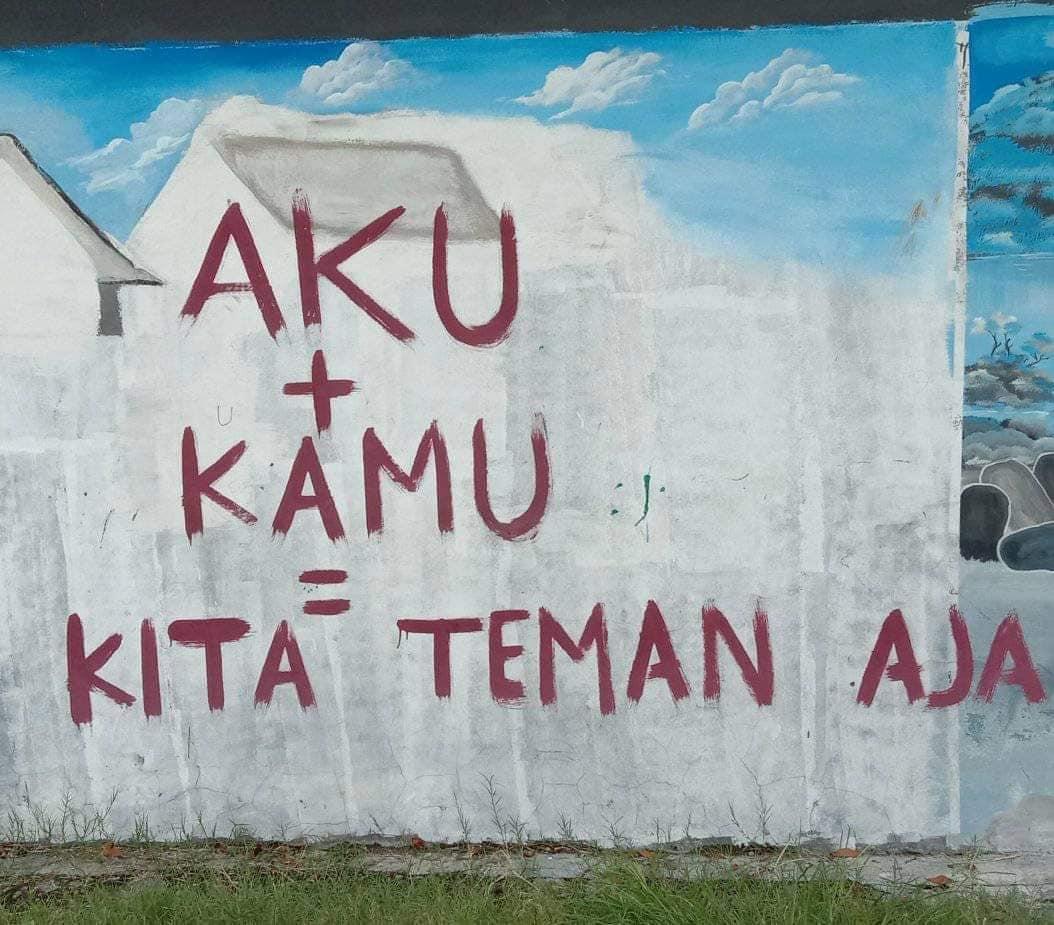 AKU
+
KAMU
=
KITA TEMAN AJA